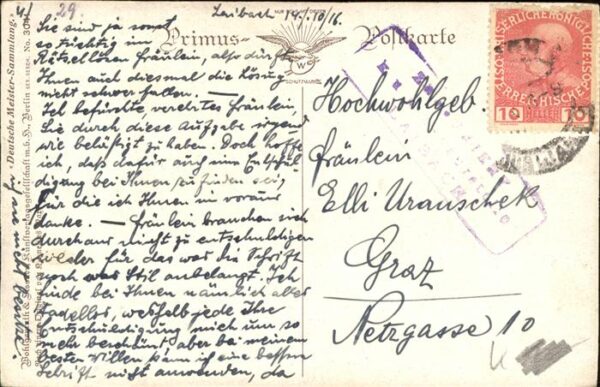 29
Laibach 19./10/16.
Primus-Postkarte
W
Sie sind ja sonst
so tüchtig im
Rätsellösen Fräulein, also dürfte
Ihnen auch diesmal die Lösung
nicht schwer fallen. —
Ich befürchte, verehrtes Fräulein,
Sie durch diese Aufgabe irgend
wie belästigt zu haben. Doch hoffe
ich, daß dafür auch eine Entschul
digung bei Ihnen zu finden sei,
für die ich Ihnen im voraus
danke. — Fräulein brauchen sich
durchaus nicht zu entschuldigen
weder für das was die Schrift
noch was Stil anbelangt. Ich
finde bei Ihnen nämlich alles
tadellos, weshalb jede Ihre
Entschuldigung mich um so
mehr beschämt, aber bei meinem
besten Willen kann ich eine bessere
Schrift nicht anwenden, da
Hochwohlgeb.
Fräulein
Elli Uranschek
Graz
Netzgasse 10
KAISERLICHE KÖNIGLICHE
ÖSTERREICHISCHE
10 HELLER 10
"Deutsche Meister-Sammlung."
Kunstverlagsgesellschaft m.b.H., Berlin